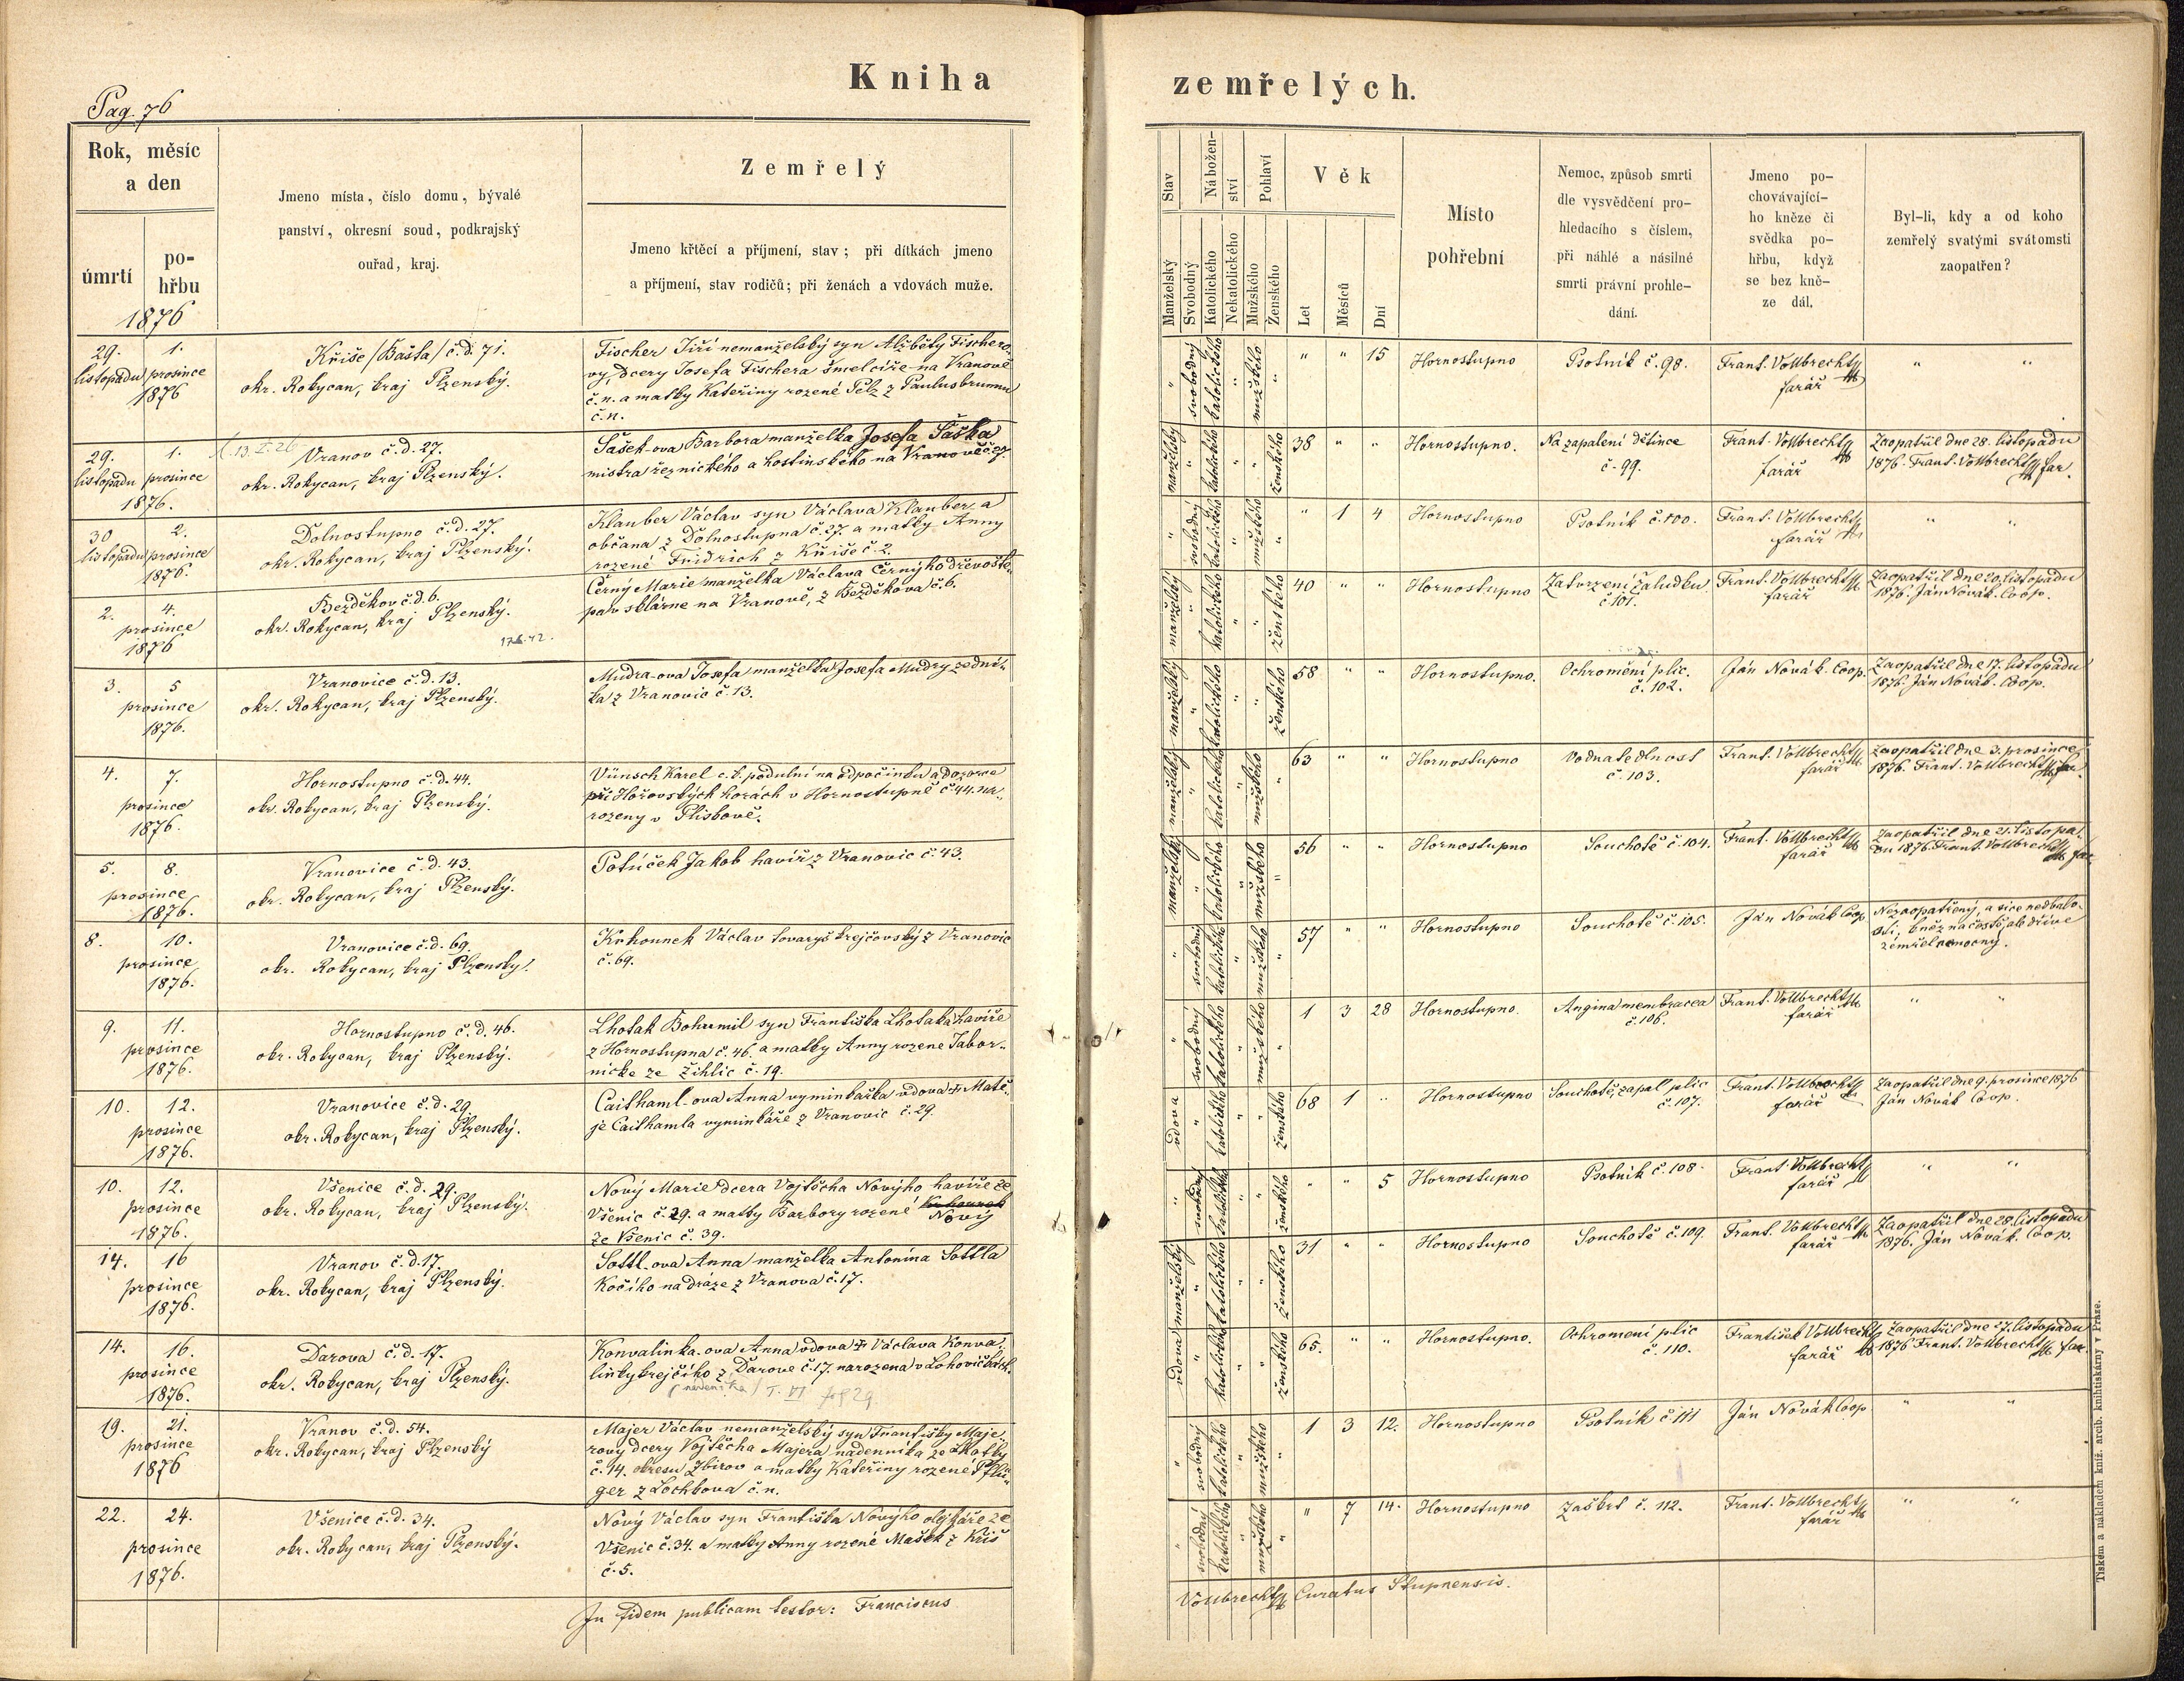 Kniha
zemřelých.
Pag. 76
Rok, měsíc
a den
úmrtí
po-
hřbu
1876
Jmeno místa, číslo domu, bývalé
panství, okresní soud, podkrajský
ouřad, kraj.
Zemřelý
Jmeno křtěcí a příjmení, stav; při dítkách jmeno
a příjmení, stav rodičů; při ženách a vdovách muže.
Stav
Manželský
Svobodný
Nábožen-
ství
Katolického
Nekatolického
Pohlaví
Mužského
Ženského
Věk
Let
Měsíců
Dní
Místo
pohřební
Nemoc, způsob smrti
dle vysvědčení pro-
hledacího s číslem,
při náhlé a násilné
smrti právní prohle-
dání.
Jmeno po-
chovávající-
ho kněze či
svědka po-
hřbu, když
se bez kně-
ze dál.
Byl-li, kdy a od koho
zemřelý svatými svátomsti
zaopatřen?
29. 1.
listopadu prosince
1876
Kříše /Bašta/ č.d. 71.
okr. Rokycan, kraj Plzenský.
Fischer Jiří nemanželský syn Alžběty Fischero-
vy, dcery Josefa Fischera šmelcíře na Vranově
č.n. a matky Kateřiny rozené Pelz z Paulusbrunnu
č.n.
" svobodný katolického " mužského " " " 15 Hornostupno Psotník č. 98. Frant. Vollbrecht
farář " "
29. 1.
listopadu prosince
1876.
Vranov č.d. 27.
okr. Rokycan, kraj Plzenský.
Šašek-ova Barbora manželka Josefa Šaška
mistra řeznického a hostinského na Vranově č. 27.
manželský " katolického " " ženského 38 " " Hornostupno. Na zapalení dětince
č. 99. Frant. Vollbrecht
farář Zaopatřil dne 28. listopadu
1876. Frant. Vollbrecht far.
30 2.
listopadu prosince
1876.
Dolnostupno č.d. 27.
okr. Rokycan, kraj Plzenský.
Klauber Václav syn Václava Klauber, a
občana z Dolnostupna č. 27. a matky Anny
rozené Fridrich z Kříše č. 2.
" svobodný katolického " mužského " " 1 4 Hornostupno Psotník č. 100. Frant. Vollbrecht
farář " "
2. 4.
prosince
1876
Bezděkov č.d. 6.
okr. Rokycan, kraj Plzenský.
Černý Marie manželka Václava Černýho dřevoště-
pa v sklárne na Vranově, z Bezděkova č. 6.
manželský " katolického " " ženského 40 " " Hornostupno Zatvrzení žaludku
č 101. Frant. Vollbrecht
farář Zaopatřil dne 20. listopadu
1876. Ján Novák. Coop.
3. 5
prosince
1876.
Vranovice č.d. 13.
okr. Rokycan, kraj Plzenský.
Mudra-ova Josefa manželka Josefa Mudry zední-
ka z Vranovic č. 13.
manželský " katolického " " ženského 58 " " Hornostupno. Ochromění plic.
č. 102. Ján Novák. Coop. Zaopatřil dne 17. listopadu
1876. Ján Novák. Coop.
4. 7.
prosince
1876.
Hornostupno č.d. 44.
okr. Rokycan, kraj Plzenský.
Vünsch Karel c.k. podulní na odpočinku a dozorce
při Hořovských horách v Hornostupně č 44. na-
rozeny v
manželský " katolického " mužského " 63 " " Hornostupno Vodnatedlnost
č. 103. Frant. Vollbrecht
farář Zaopatřil dne 3. prosince
1876. Frant. Vollbrecht far.
5. 8.
prosince
1876.
Vranovice č.d. 43.
okr. Rokycan, kraj Plzenský.
Potůček Jakob havíř z Vranovic č. 43.
manželský " katolického " mužského " 56 " " Hornostupno Souchotě č. 104. Frant. Vollbrecht
farář Zaopatřil dne 21. listopa-
du 1876. Frant. Vollbrecht far.
8. 10.
prosince
1876.
Vranovice č.d. 69.
okr. Rokycan, kraj Plzenský.
Krhounek Václav tovaryš krejčovský z Vranovic
č. 69.
" svobodný katolického " mužského " 57 " " Hornostupno Souchotě č. 105. Ján Novák Coop Nezaopatřený, a sice nedbalo-
sti, kněz na cestě, ale dříve
zemřel nemocný.
9. 11.
prosince
1876.
Hornostupno č.d. 46.
okr. Rokycan, kraj Plzenský.
Lhoták Bohumil syn Františka Lhotaka havíře
z Hornostupna č. 46. a matky Anny rozene Tabor-
nicke ze Žihlic č. 19.
" svobodný katolického " mužského " 1 3 28 Hornostupno. Angina membracea
č. 106. Frant. Vollbrecht
farář " "
10. 12.
prosince
1876.
Vranovice č.d. 29.
okr. Rokycan, kraj Plzenský.
Caithaml-ova Anna vyminkačka vdova † Matě-
je Caithamla vyminkáře z Vranovic č. 29.
vdova " katolického " " ženského 68 1 " Hornostupno Souchotě, zapal plic
č. 107. Frant. Vollbrecht
farář Zaopatřil dne 9. prosince 1876
Ján Novák Coop.
10. 12.
prosince
1876.
Všenice č.d. 29.
okr. Rokycan, kraj Plzenský.
Nový Marie dcera Vojtěcha Novýho havíře ze
Všenic č. 29. a matky Barbory rozené Krhounek
Nový
ze Všenic č. 39.
" svobodný katolického " " ženského " " 5 Hornostupno Psotník č. 108. Frant. Vollbrecht
farář " "
14. 16
prosince
1876.
Vranov č.d. 17.
okr. Rokycan, kraj Plzenský.
Sottl-ova Anna manželka Antonína Sottla
Kočího na dráze z Vranova č. 17.
manželský " katolického " " ženského 31 " " Hornostupno Souchotě č. 109. Frant. Vollbrecht
farář Zaopatřil dne 28. listopadu
1876. Ján Novák. Coop.
14. 16.
prosince
1876.
Darova č.d. 17.
okr. Rokycan, kraj Plzenský.
Konvalinka-ova Anna vdova † Václava Konva-
linky krejčího z Darove č. 17. narozena v
vdova " katolického " " ženského 65. " " Hornostupno. Ochromení plic
č. 110. František Vollbrecht
farář Zaopatřil dne 27. listopadu
1876 Frant. Vollbrecht far.
19. 21.
prosince
1876
Vranov č.d. 54.
okr. Rokycan, kraj Plzenský
Majer Václav nemanželský syn Františky Maje-
rovy dcery Vojtěcha Majera nadenníka ze
č. 14. okresu Zbirov a matky Kateřiny rozené Pflü-
ger z Lochkova č.n.
" svobodný katolického " mužského " 1 3 12. Hornostupno Psotník č 111 Ján Novák Coop " "
22. 24.
prosince
1876.
Všenice č.d. 34.
okr. Rokycan, kraj Plzenský.
Nový Václav syn Františka Novýho olejkáře ze
Všenic č. 34. a matky Anny rozené Mašek z Kříš
č. 5.
" svobodný katolického " mužského " " 7 14. Hornostupno Zaškrt č. 112. Frant. Vollbrecht
farář " "
In fidem publicam testor: Franciscus
Vollbrecht Curatus Stupnensis.
Tiskem a nákladem kníž. arcib. knihtiskárny v Praze.